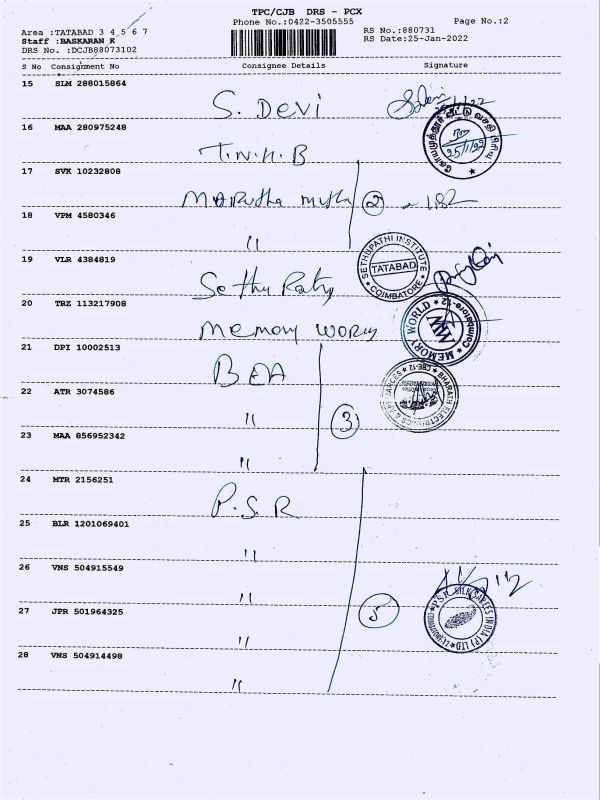 TPC/CJB DRS - PCX
Phone No.:0422-3505555
Page No.:2
Area :TATABAD 3 4 5 6 7
RS No.:880731
Staff :BASKARAN K
RS Date:25-Jan-2022
DRS No. :DCJB88073102
S No Consignment No Consignee Details Signature
15 SLM 288015864
S. DEVI
16 MAA 280975248
T.N.H.B
17 SVK 10232808
MARutha muthu 2
18 VPM 4580346
"
19 VLR 4384819
SETHUPATHI INSTITUTE
TATABAD
COIMBATORE
20 TRZ 113217908
Memory World
MEMORY WORLD
Coimbatore-12
MW
21 DPI 10002513
BEA
22 ATR 3074586
" 3
BHARATH ELECTRONICS & APPLIANCES
CBE-12
23 MAA 856952342
"
24 MTR 2156251
P.S.R
25 BLR 1201069401
"
26 VNS 504915549
"
27 JPR 501964325
" 5
P.S.R. SILK SAREES INDIA (P) LTD
28 VNS 504914498
"